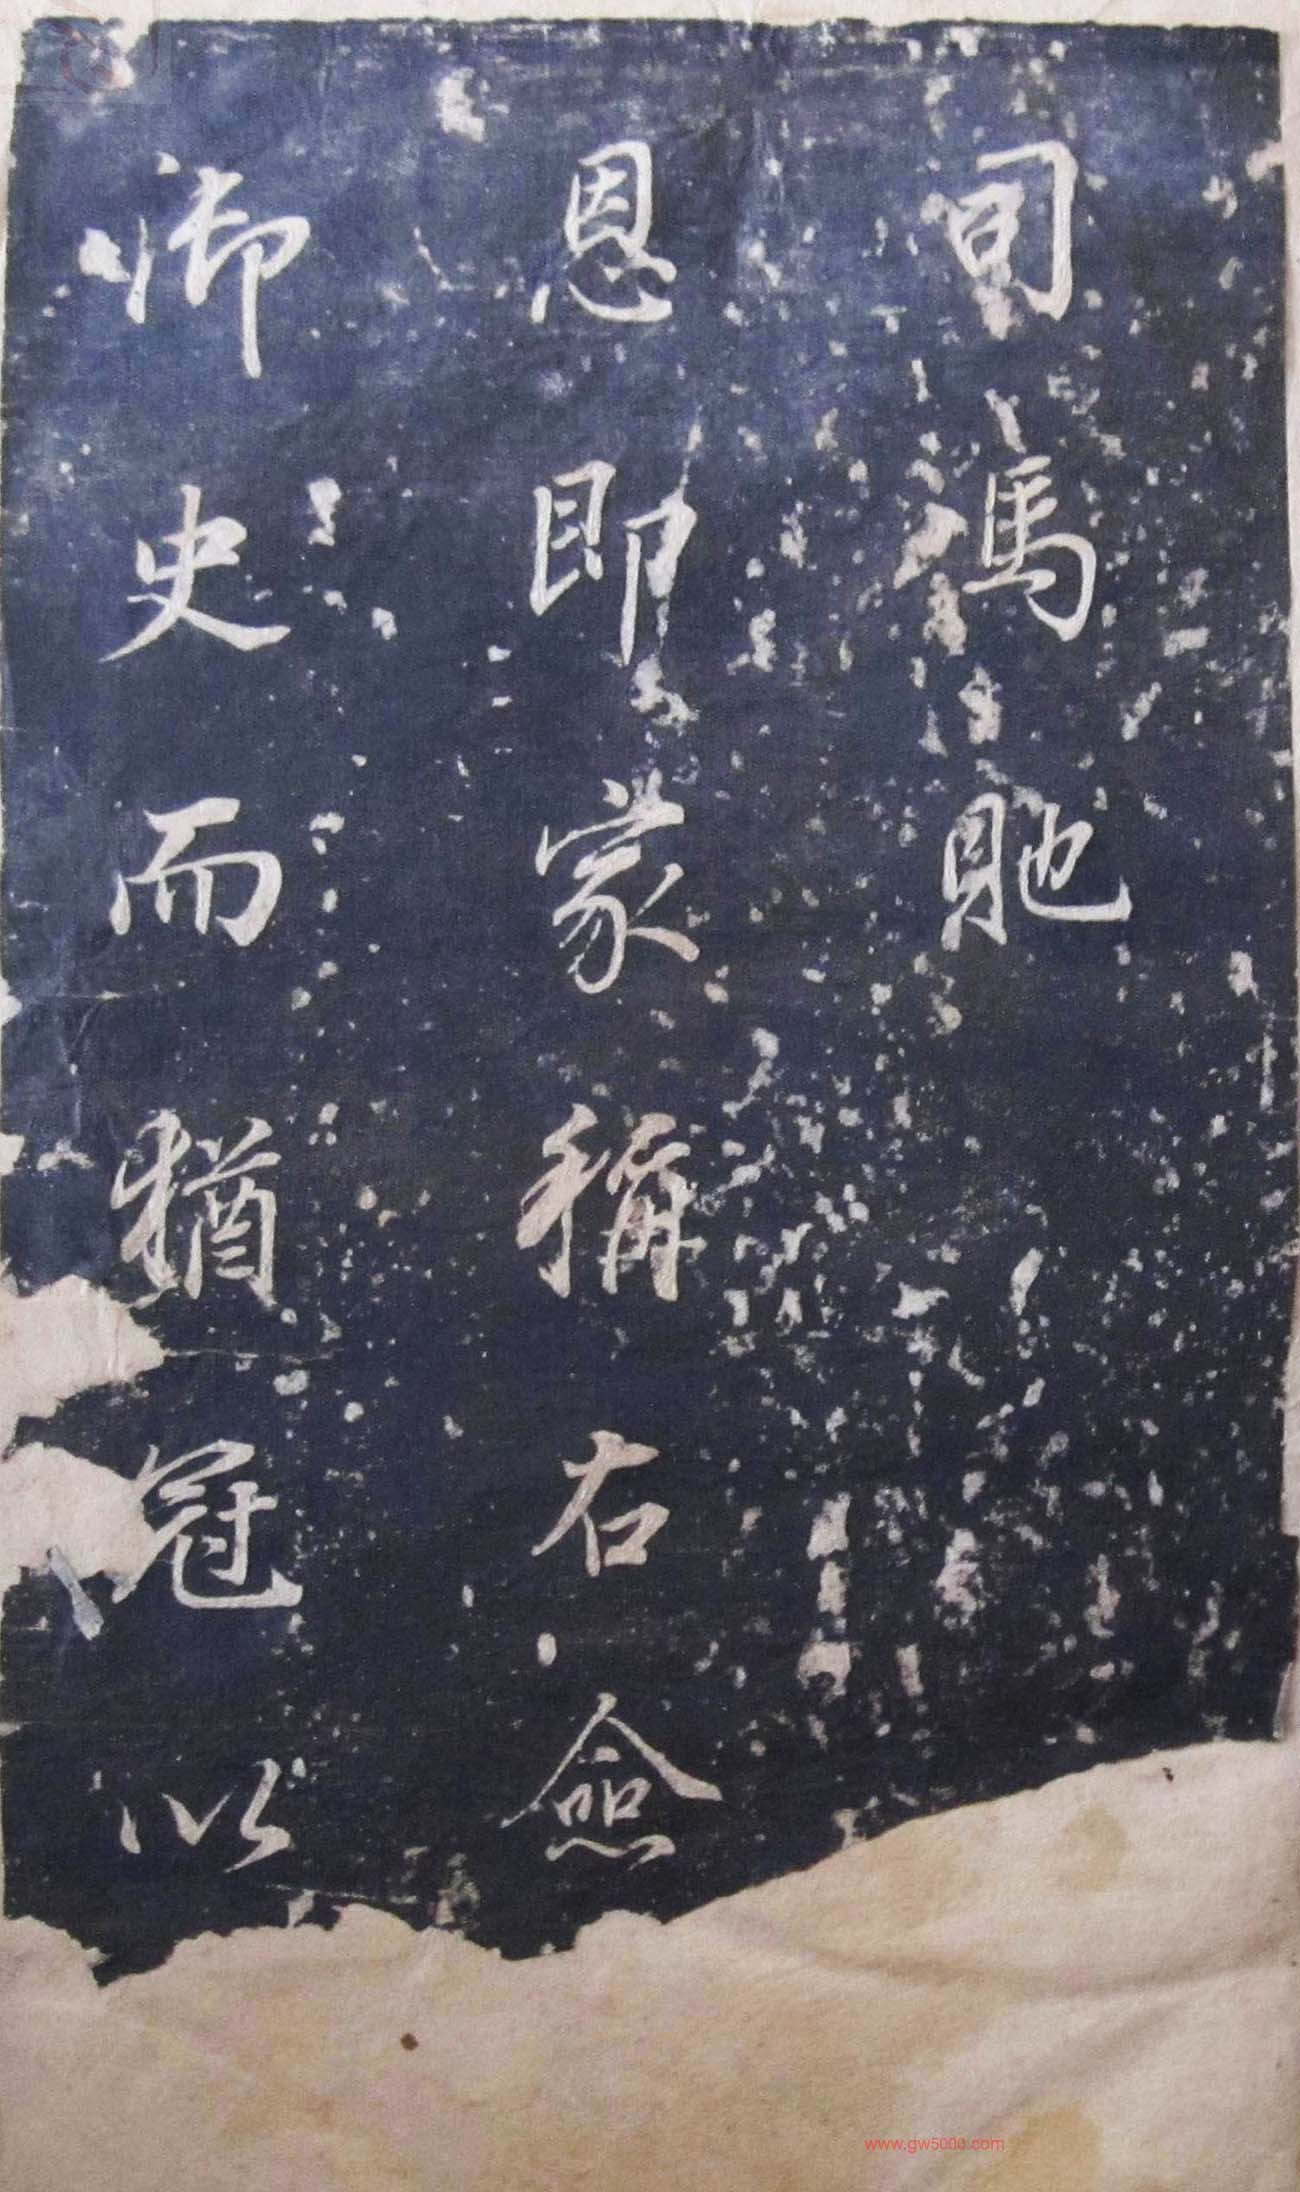 司馮貤
恩即家稱右僉
御史而猶冠以
www.gw5000.com